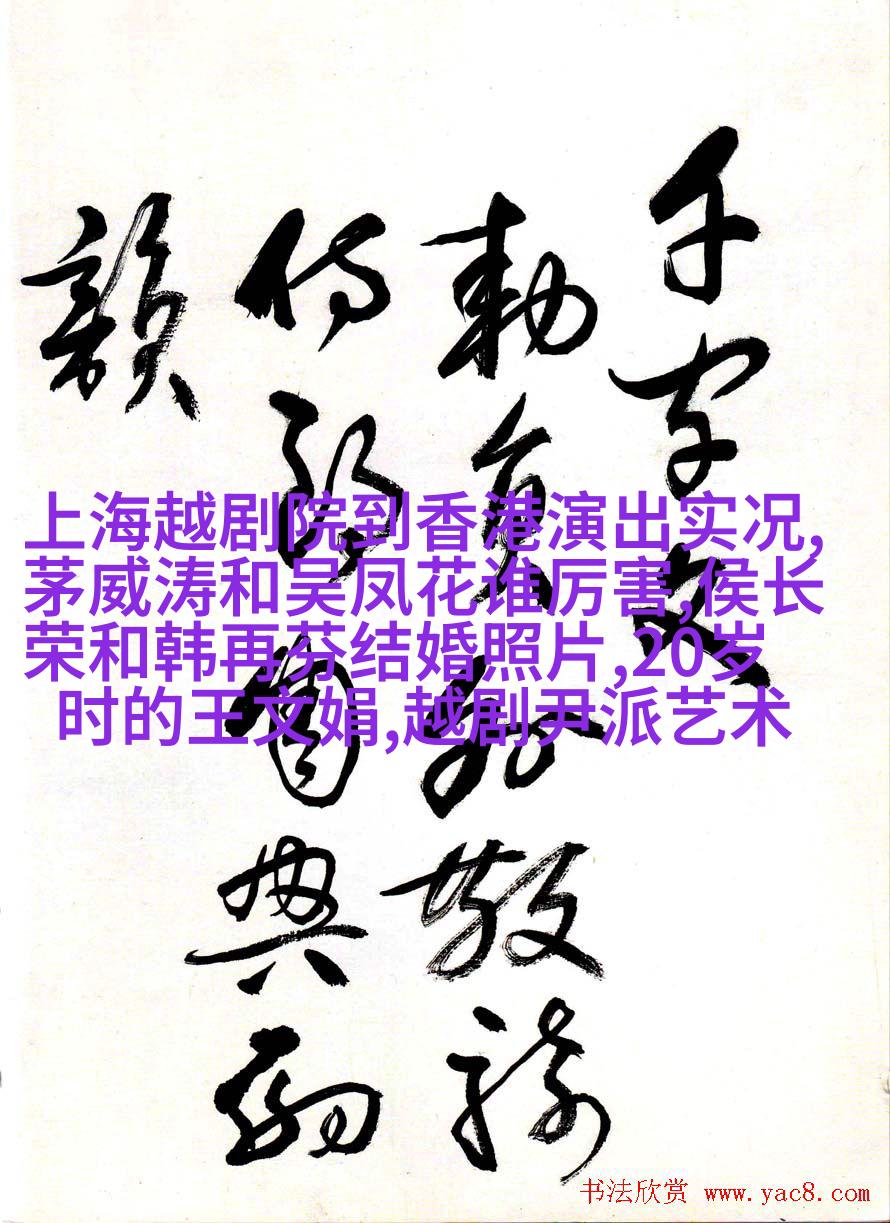 千字文
勅員外散騎
侍郎周興嗣
韻
上海越剧院到香港演出实况,
茅威涛和吴凤花谁厉害,侯长
荣和韩再芬结婚照片,20岁
时的王文娟,越剧尹派艺术
书法欣赏 www.yac8.com